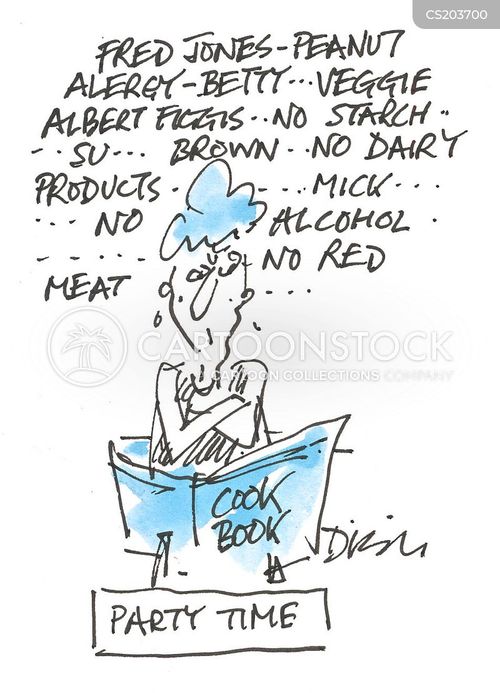 CS203700
FRED JONES-PEANUT
ALERGY-BETTY...VEGGIE
ALBERT FIGGIS..NO STARCH..
...SU... BROWN..NO DAIRY
PRODUCTS......MICK...
...NO ALCOHOL.
......NO RED
MEAT ....
CARTOONSTOCK
CARTOON COLLECTIONS COMPANY
COOK
BOOK
PARTY TIME